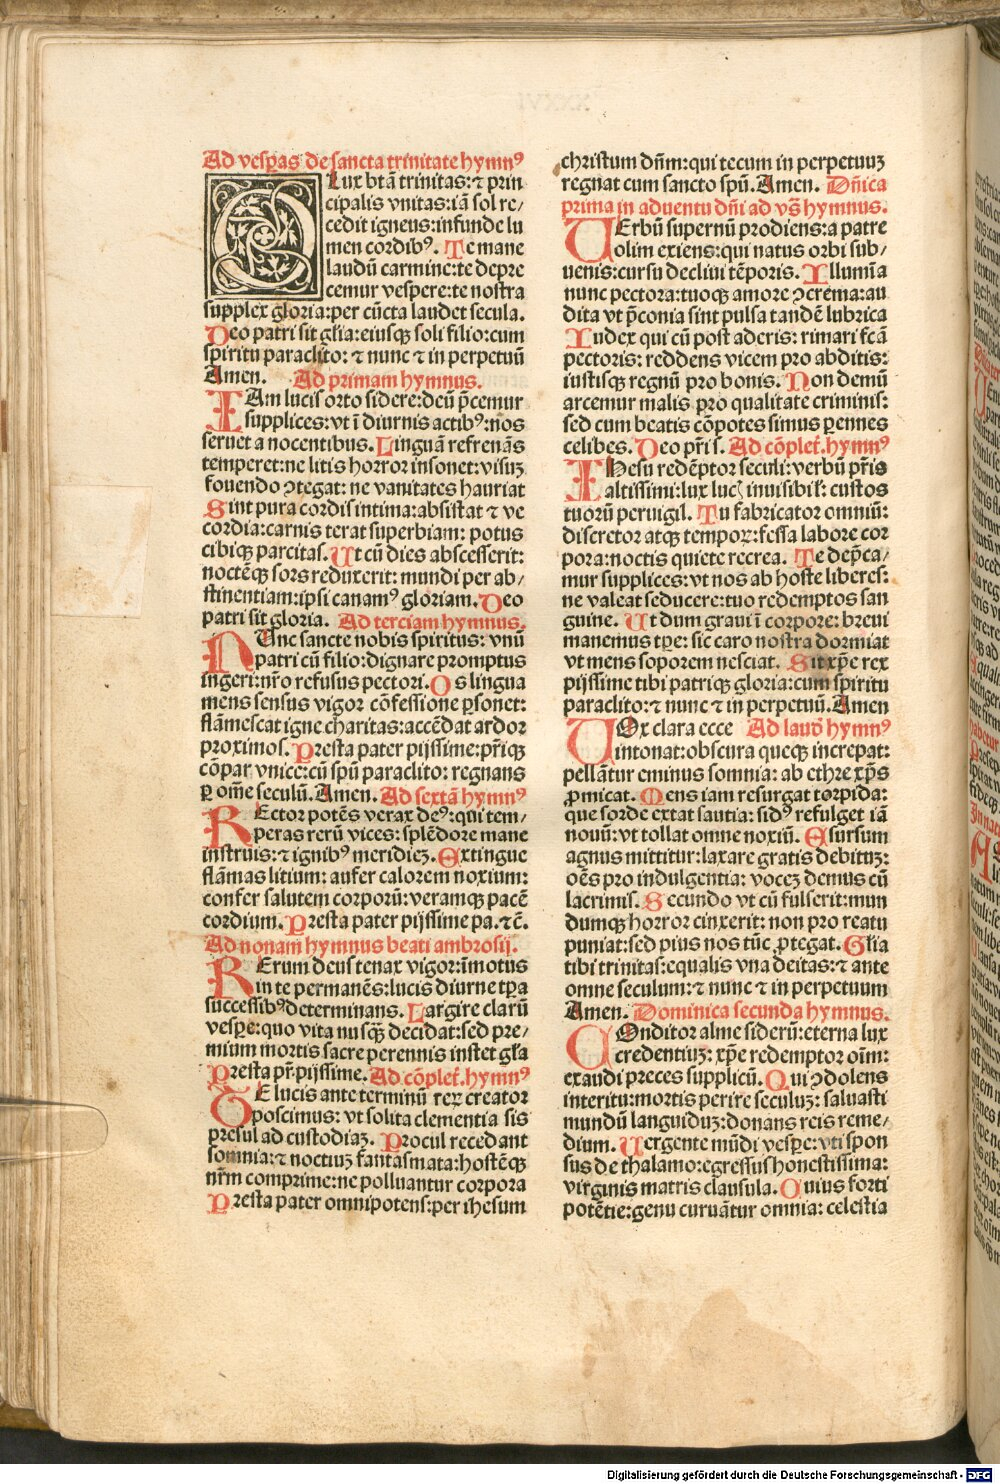 Ad vesp̱as de sancta trinitate hymnꝰ
O Lux btā trinitas: ⁊ prin
cipalis vnitas: iā sol re/
cedit igneus: infunde lu
men cordibꝰ. Te mane
laudū carmine: te depre
cemur vespere: te nostra
supplex gloria: per cūcta laudet secula.
Deo patri sit gl̄ia: eiusqꝫ soli filio: cum
spiritu paraclito: ⁊ nunc ⁊ in perpetuū
Amen. Ad primam hymnus.
IAm lucis orto sidere: deū p̄cemur
supplices: vt ī diurnis actibꝰ: nos
seruet a nocentibus. Linguā refrenās
temperet: ne litis horror insonet: visuꝫ
fouendo ꝯtegat: ne vanitates hauriat
Sint pura cordis intima: absistat ⁊ ve
cordia: carnis terat superbiam: potus
cibiqꝫ parcitas. Ut cū dies abscesserit:
noctēqꝫ sors reduxerit: mundi per ab/
stinentiam: ipsi canamꝰ gloriam. Deo
patri sit gloria. Ad terciam hymnus.
NUnc sancte nobis spiritus: vnū
patri cū filio: dignare promptus
ingeri: nr̄o refusus pectori. Os lingua
mens sensus vigor cōfessione ꝑsonet:
flāmescat igne charitas: accēdat ardor
proximos. Presta pater pijssime: pr̄iqꝫ
cōpar vnice: cū spū paraclito: regnans
ꝑ om̄e seculū. Amen. Ad sextā hymnꝰ
REctor potēs verax deꝰ: qui tem/
peras rerū vices: splēdore mane
instruis: ⁊ ignibꝰ meridieꝫ. Extingue
flāmas litium: aufer calorem noxium:
confer salutem corporū: veramqꝫ pacē
cordium. Presta pater pijssime pa. ⁊c̄.
Ad nonam hymnus beati ambrosij.
RErum deus tenax vigor: īmotus
in te permanēs: lucis diurne tꝑa
successibꝰ determinans. Largire clarū
vesꝑe: quo vita nusqꝫ decidat: sed pre/
mium mortis sacre perennis instet gl̄a
Presta pr̄ pijssime. Ad cōplet̄. hymnꝰ
TE lucis ante terminū reꝝ creator
poscimus: vt solita clementia sis
presul ad custodiaꝫ. Procul recedant
somnia: ⁊ noctiuꝫ fantasmata: hostēqꝫ
nr̄m comprime: ne polluantur corpora
Presta pater omnipotens: per ihesum
christum dn̄m: qui tecum in perpetuuꝫ
regnat cum sancto spū. Amen. Dn̄ica
prima in aduentu dn̄i ad vs̄ hymnus.
UErbū supernū prodiens: a patre
olim exiens: qui natus orbi sub/
uenis: cursu decliui tēporis. Illumīa
nunc pectora: tuoqꝫ amore ꝯcrema: au
dita vt p̄conia sint pulsa tandē lubrica
Iudex qui cū post aderis: rimari fc̄ā
pectoris: reddens vicem pro abditis:
iustisqꝫ regnū pro bonis. Non demū
arcemur malis pro qualitate criminis:
sed cum beatis cōpotes simus ꝑennes
celibes. Deo pr̄i s. Ad cōplet̄. hymnꝰ
IHesu redēptor seculi: verbū pr̄is
altissimi: lux lucꝭ inuisibil̄: custos
tuorū peruigil. Tu fabricator omniū:
discretor atqꝫ tempoꝝ: fessa labore cor
pora: noctis quiete recrea. Te dep̄ca/
mur supplices: vt nos ab hoste liberes:
ne valeat seducere: tuo redemptos san
guine. Ut dum graui ī corpore: breui
manemus tꝑe: sic caro nostra dormiat
vt mens soporem nesciat. Sit xp̄e rex
pijssime tibi patriqꝫ gloria: cum spiritu
paraclito: ⁊ nunc ⁊ in perpetuū. Amen
UOx clara ecce Ad laud̄ hymnꝰ
intonat: obscura queqꝫ increpat:
pellātur eminus somnia: ab ethre xp̄s
ꝓmicat. Mens iam resurgat torpida:
que sorde extat sautia: sidꝰ refulget iā
nouū: vt tollat omne noxiū. Esursum
agnus mittitur: laxare gratis debitū:
oēs pro indulgentia: voceꝫ demus cū
lacrimis. Secundo vt cū fulserit: mun
dumqꝫ horror cinxerit: non pro reatu
puniat: sed pius nos tūc ꝓtegat. Gl̄ia
tibi trinitas: equalis vna deitas: ⁊ ante
omne seculum: ⁊ nunc ⁊ in perpetuum
Amen. Dominica secunda hymnus.
COnditor alme siderū: eterna lux
credentiuꝫ: xp̄e redemptor oīm:
exaudi preces supplicū. Qui ꝯdolens
interitu: mortis perire seculuꝫ: saluasti
mundū languiduꝫ: donans reis reme/
dium. Uergente mūdi vesꝑe: vti spon
sus de thalamo: egressus honestissima:
virginis matris clausula. Cuius forti
potētie: genu curuātur omnia: celestia
Digitalisierung gefördert durch die Deutsche Forschungsgemeinschaft - DFG